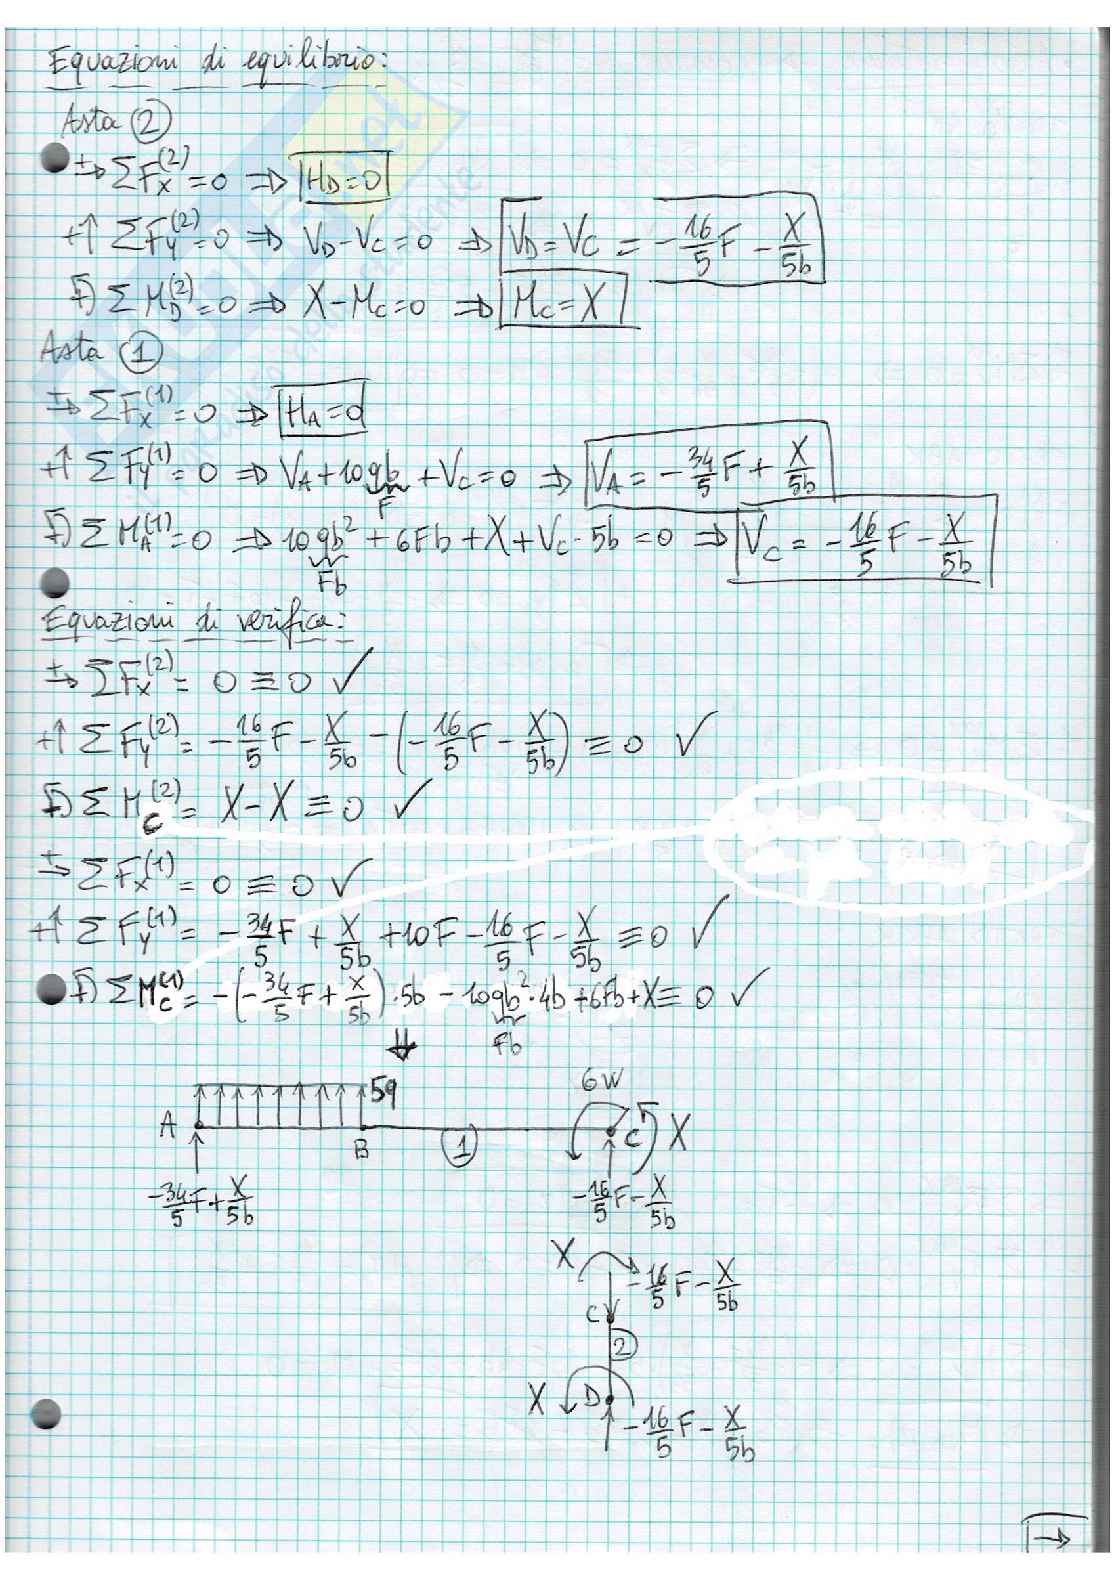 Equazioni di equilibrio:
Asta ②
+→ ΣFx⁽²⁾=0 ⇒ HD=0
+↑ ΣFy⁽²⁾=0 ⇒ VD-VC=0 ⇒ VD=VC = -16/5F - X/5b
+) ΣMD⁽²⁾=0 ⇒ X-MC=0 ⇒ MC=X
Asta ①
+→ ΣFx⁽¹⁾=0 ⇒ HA=0
+↑ ΣFy⁽¹⁾=0 ⇒ VA+10qb+VC=0 ⇒ VA=-34/5F+X/5b
F
+) ΣMA⁽¹⁾=0 ⇒ 10qb²+6Fb+X+VC·5b=0 ⇒ VC=-16/5F-X/5b
Fb
Equazioni di verifica:
+→ ΣFx⁽²⁾= 0≡0 ✓
+↑ ΣFy⁽²⁾= -16/5F-X/5b-(-16/5F-X/5b)≡0 ✓
+) ΣMC⁽²⁾= X-X≡0 ✓
+→ ΣFx⁽¹⁾= 0≡0 ✓
+↑ ΣFy⁽¹⁾= -34/5F+X/5b+10F-16/5F-X/5b≡0 ✓
+) ΣMC⁽¹⁾=-(-34/5F+X/5b)·5b-10qb²·4b+6Fb+X≡0 ✓
Fb
⇓
6W
5q
A
B
①
C
X
-34/5F+X/5b
-16/5F-X/5b
X
-16/5F-X/5b
C
②
X
D
-16/5F-X/5b
→